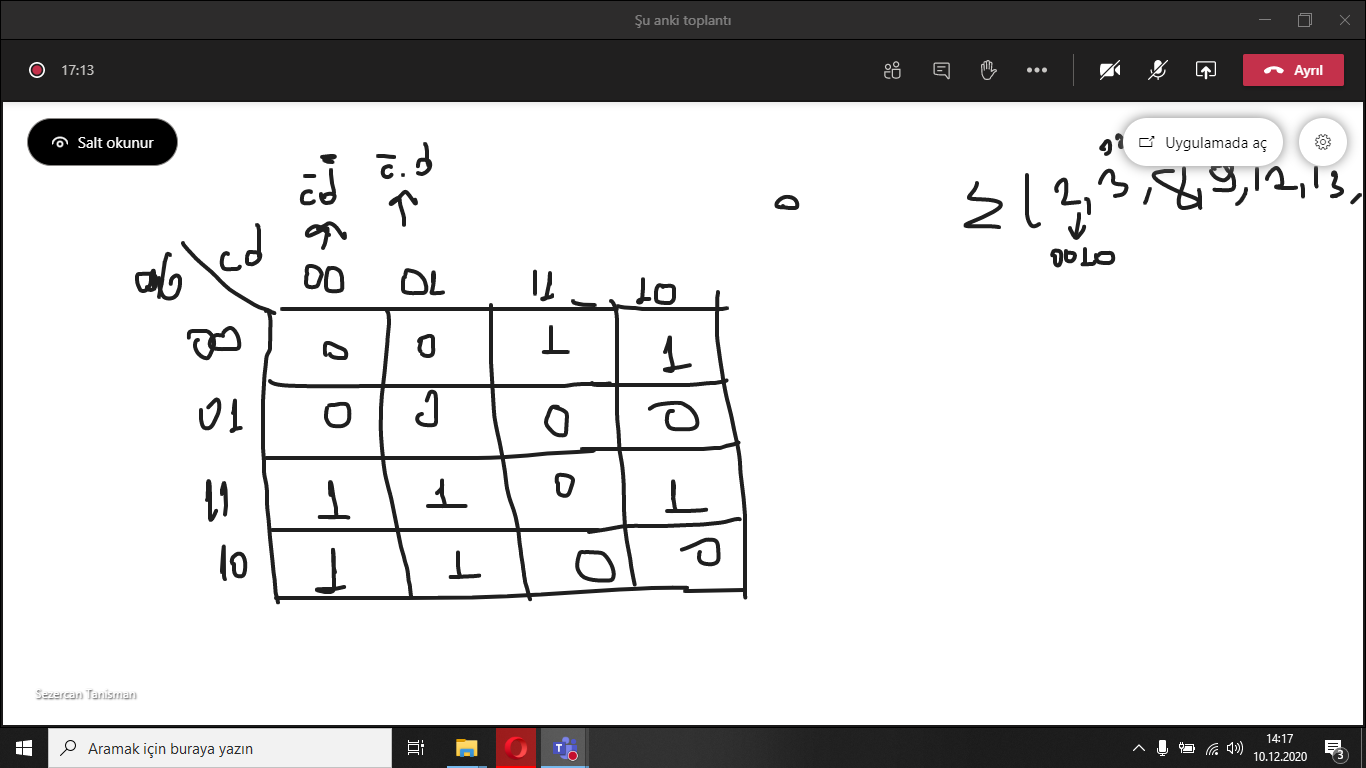 Şu anki toplantı
17:13
Ayrıl
Salt okunur
Uygulamada aç
c̄d̄ c̄.d
Σ(2,3,8,9,12,13,
0010
ab cd 00 01 11 10
00 0 0 1 1
01 0 0 0 0
11 1 1 0 1
10 1 1 0 0
Sezercan Tanisman
Aramak için buraya yazın
14:17
10.12.2020
3